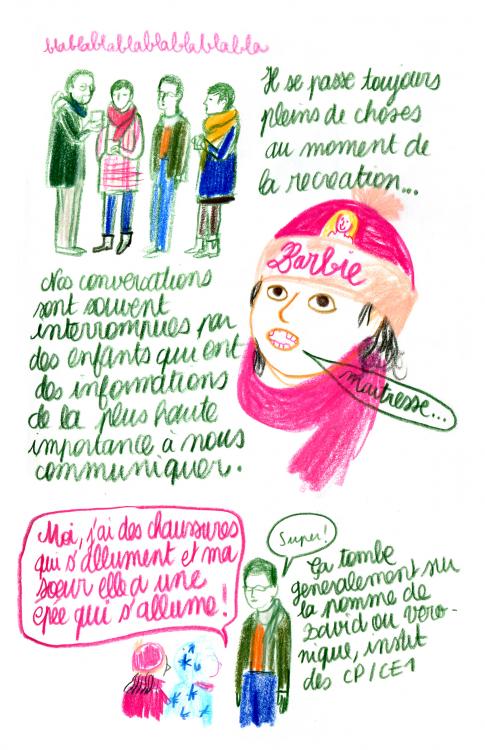 blablablablablablablabla
Il se passe toujours
pleins de choses
au moment de
la recreation...
Barbie
Nos conversations
sont souvent
interrompues par
des enfants qui ont
des informations
de la plus haute
importance à nous
communiquer.
maitresse...
Moi, j'ai des chaussures
qui s'allument et ma
soeur elle a une
épée qui s'allume!
Super!
Ca tombe
generalement sur
la pomme de
David ou Vero-
nique, instit
des CP/CE1